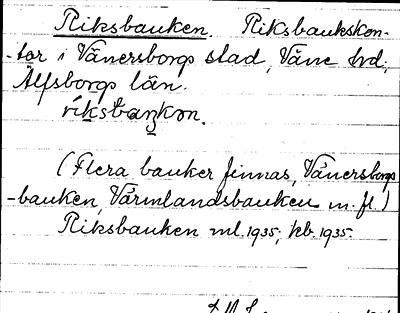 Riksbanken. Riksbankskon-
-tor i Vänersborgs stad, Väne hd,
Älfsborgs län.
ríksbaŋkɷn.
(Flera banker finnas, Vänersborgs
-banken, Värmlandsbanken m. fl.)
Riksbanken ml. 1935, kb. 1935.